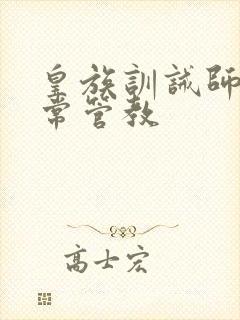 皇族訓誡師
常管教
高士宏